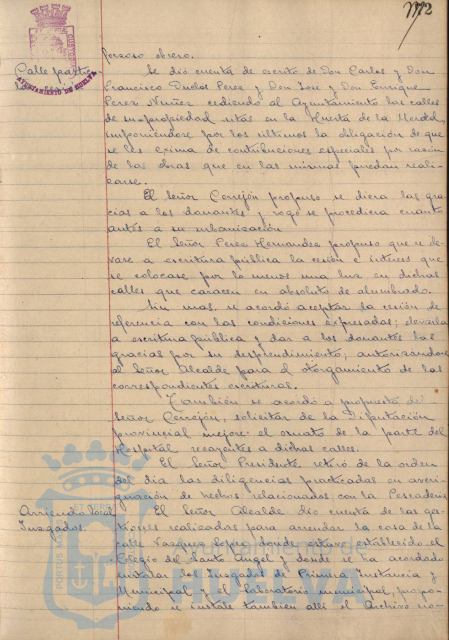 1772
forzoso obrero.
Calle partic
AYUNTAMIENTO DE HUELVA
Se dió cuenta de escrito de Don Carlos y Don
Francisco Duclos Perez y Don Jose y Don Enrique
Perez Nuñez cediendo al Ayuntamiento las calles
de su propiedad sitas en la Huerta de la Merced,
imponiendose por los ultimos la obligación de que
se les exima de contribuciones especiales por razón
de las obras que en las mismas puedan reali-
zarse.
El Señor Cerrejón propuso se diera las gra-
cias a los donantes y rogó se procediera cuanto
antes a su urbanización
El Señor Perez Hernandez propuso que se ele-
vase a escritura pública la cesión e interesó que
se colocase por lo menos una luz en dichas
calles que carecen en absoluto de alumbrado.
Sin mas, se acordó aceptar la cesión de
referencia con las condiciones expresadas; elevarla
a escritura pública y dar a los donantes las
gracias por su desprendimiento; autorizandose
al Señor Alcalde para el otorgamiento de las
correspondientes escrituras.
También se acordó a propuesta del
Señor Cerrejón, solicitar de la Diputación
provincial mejore el ornato de la parte del
Hospital, recayentes a dichas calles.
El Señor Presidente retiró de la orden
del dia las diligencias practicadas en averi-
guación de hechos relacionados con la Pescaderia
Arriendo local
Juzgados.
El Señor Alcalde dio cuenta de las ges-
tiones realizadas para arrendar la casa de la
calle Vazquez Lopez donde estuvo establecido el
Colegio del Santo Angel y donde se ha acordado
instalar los Juzgados de Primera Instancia y
Municipal y el Laboratorio municipal, propo-
niendo se instale tambien alli el Archivo no-
Ayuntamiento de
HUELVA